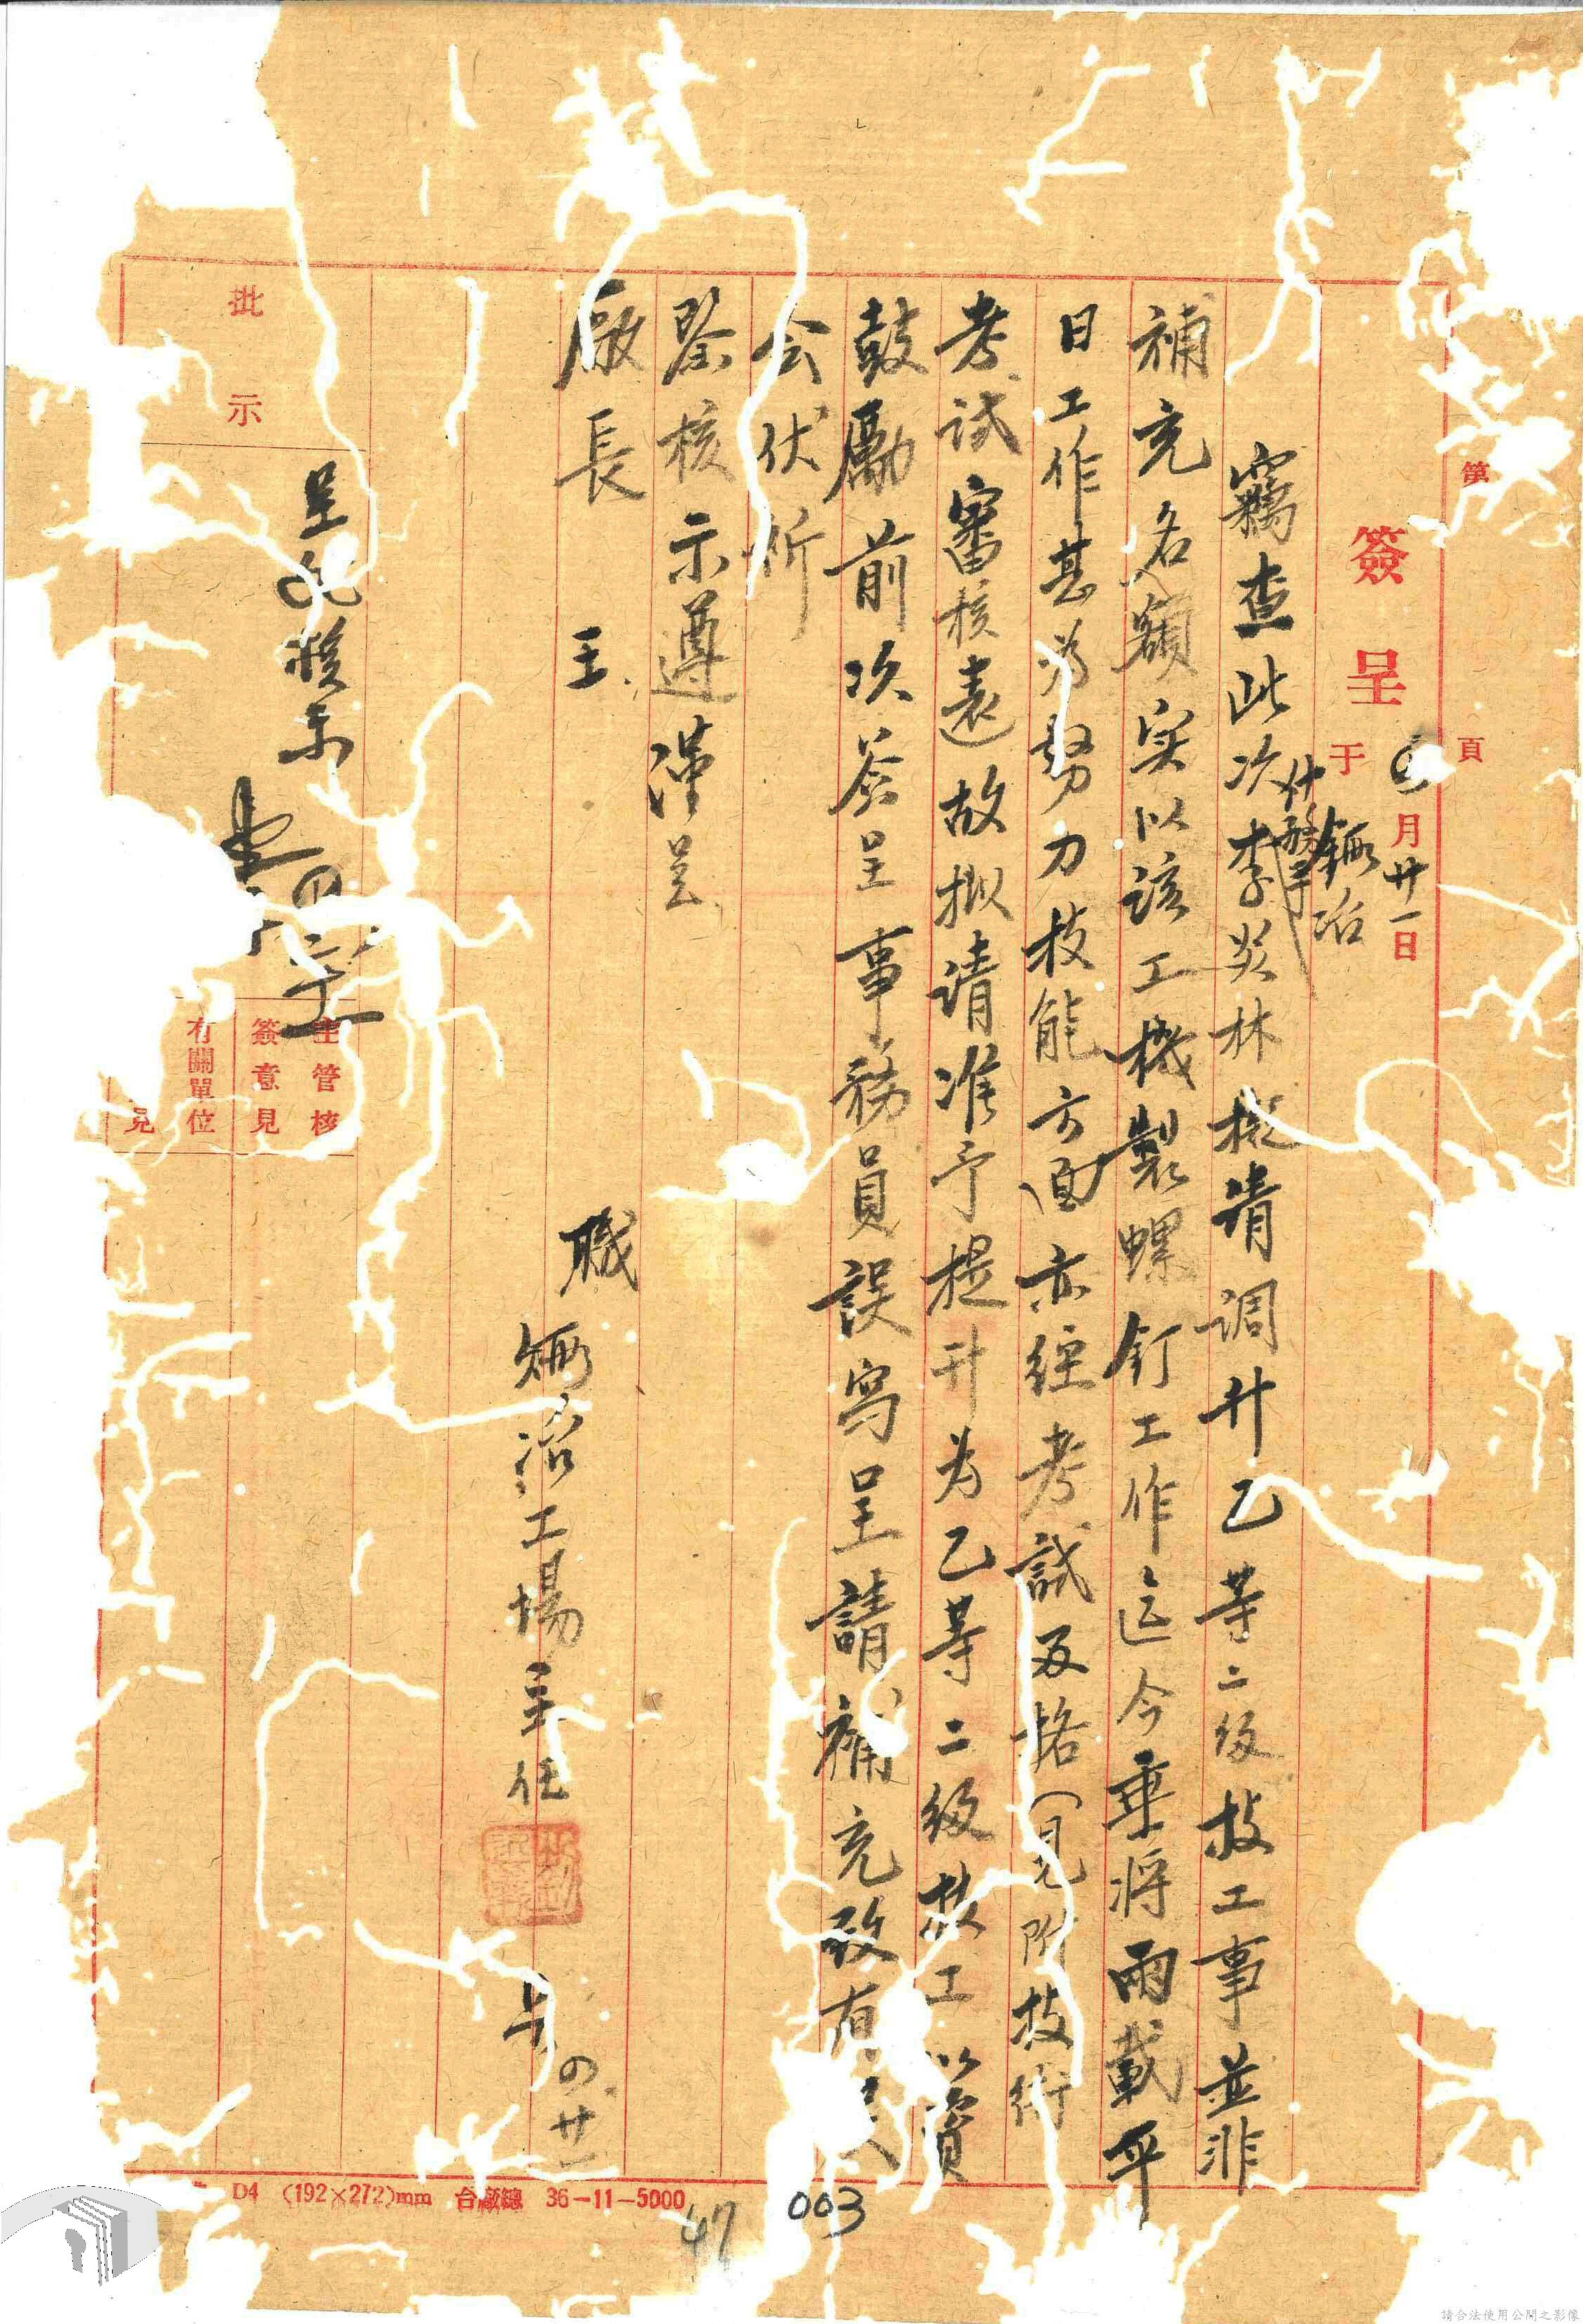 第 頁
簽呈 于 月廿一日
鍛冶
竊查此次李炎林擬請調升乙等二級技工事並非
補充名額实以該工機製螺釘工作迄今乗將兩載平
日工作甚為努力技能方面亦經考試及格(見附技術
考試審核表)故拟請准予提升為乙等二級技工以資
鼓勵前次簽呈事務員誤寫呈請補充致有
会伏祈
鑒核示遵謹呈
廠長 王
職 鍛冶工場主任
の廿一
批示
呈 核示
主管核簽意見
有關單位
見
D4 (192×272)mm 台廠總 36-11-5000
47
003
請合法使用公開之影像